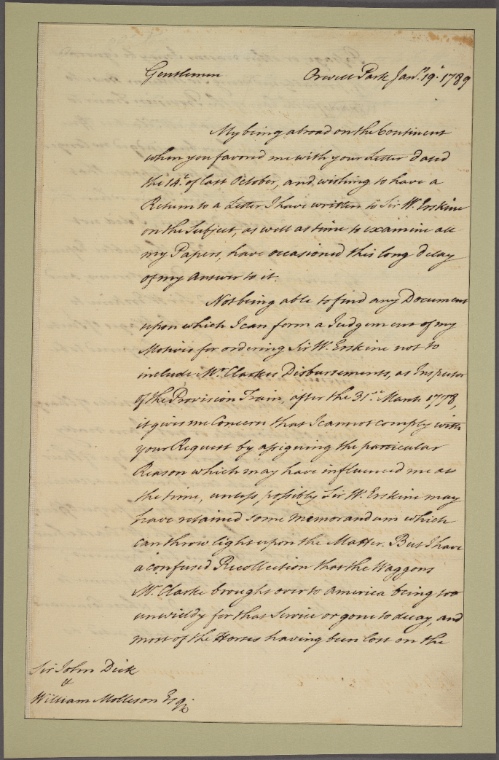 Gentlemen Orwell Park Jany. 19th. 1789
My being abroad on the Continent
when you favored me with your Letter dated
the 14th. of last October, and, wishing to have a
Return to a Letter I have written to Sir W. Erskine
on the Subject, as well as time to examine all
my Papers, have occasioned this long delay
of my Answer to it.
Not being able to find any Document
upon which I can form a Judgement of my
Motives for ordering Sir W. Erskine not to
include Mr. Clarkes Disbursements, as Inspector
of the Provision Train, after the 31st. March 1778,
it gives me Concern that I cannot comply with
your Request by assigning the particular
Reason which may have influenced me at
the time, unless, possibly Sir W. Erskine may
have retained some Memorandum which
can throw light upon the Matter. But I have
a confused Recollection that the Waggons
Mr. Clarke brought over to America being too
unwieldy for that Service or gone to decay, and
most of the Horses having been lost on the
Sir John Dick
&
William Molleson Esqr.